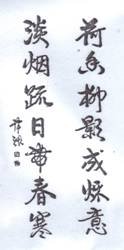 荷香柳影成秋意
淡烟疏日帶春寒